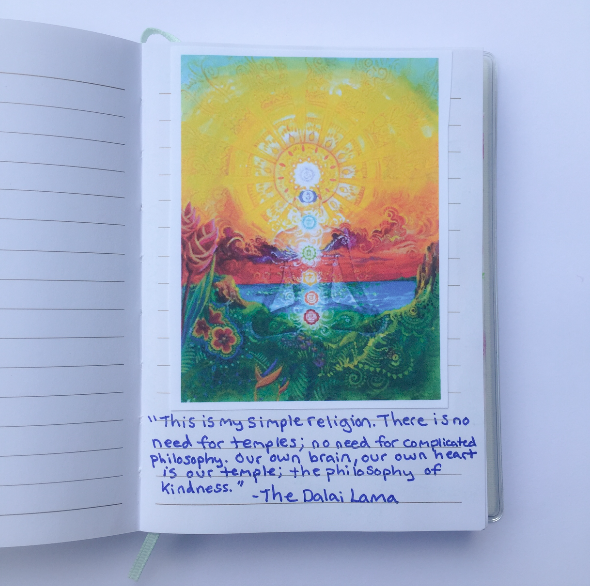 "This is my simple religion. There is no
need for temples; no need for complicated
philosophy. Our own brain, our own heart
is our temple; the philosophy of
kindness."
-The Dalai Lama